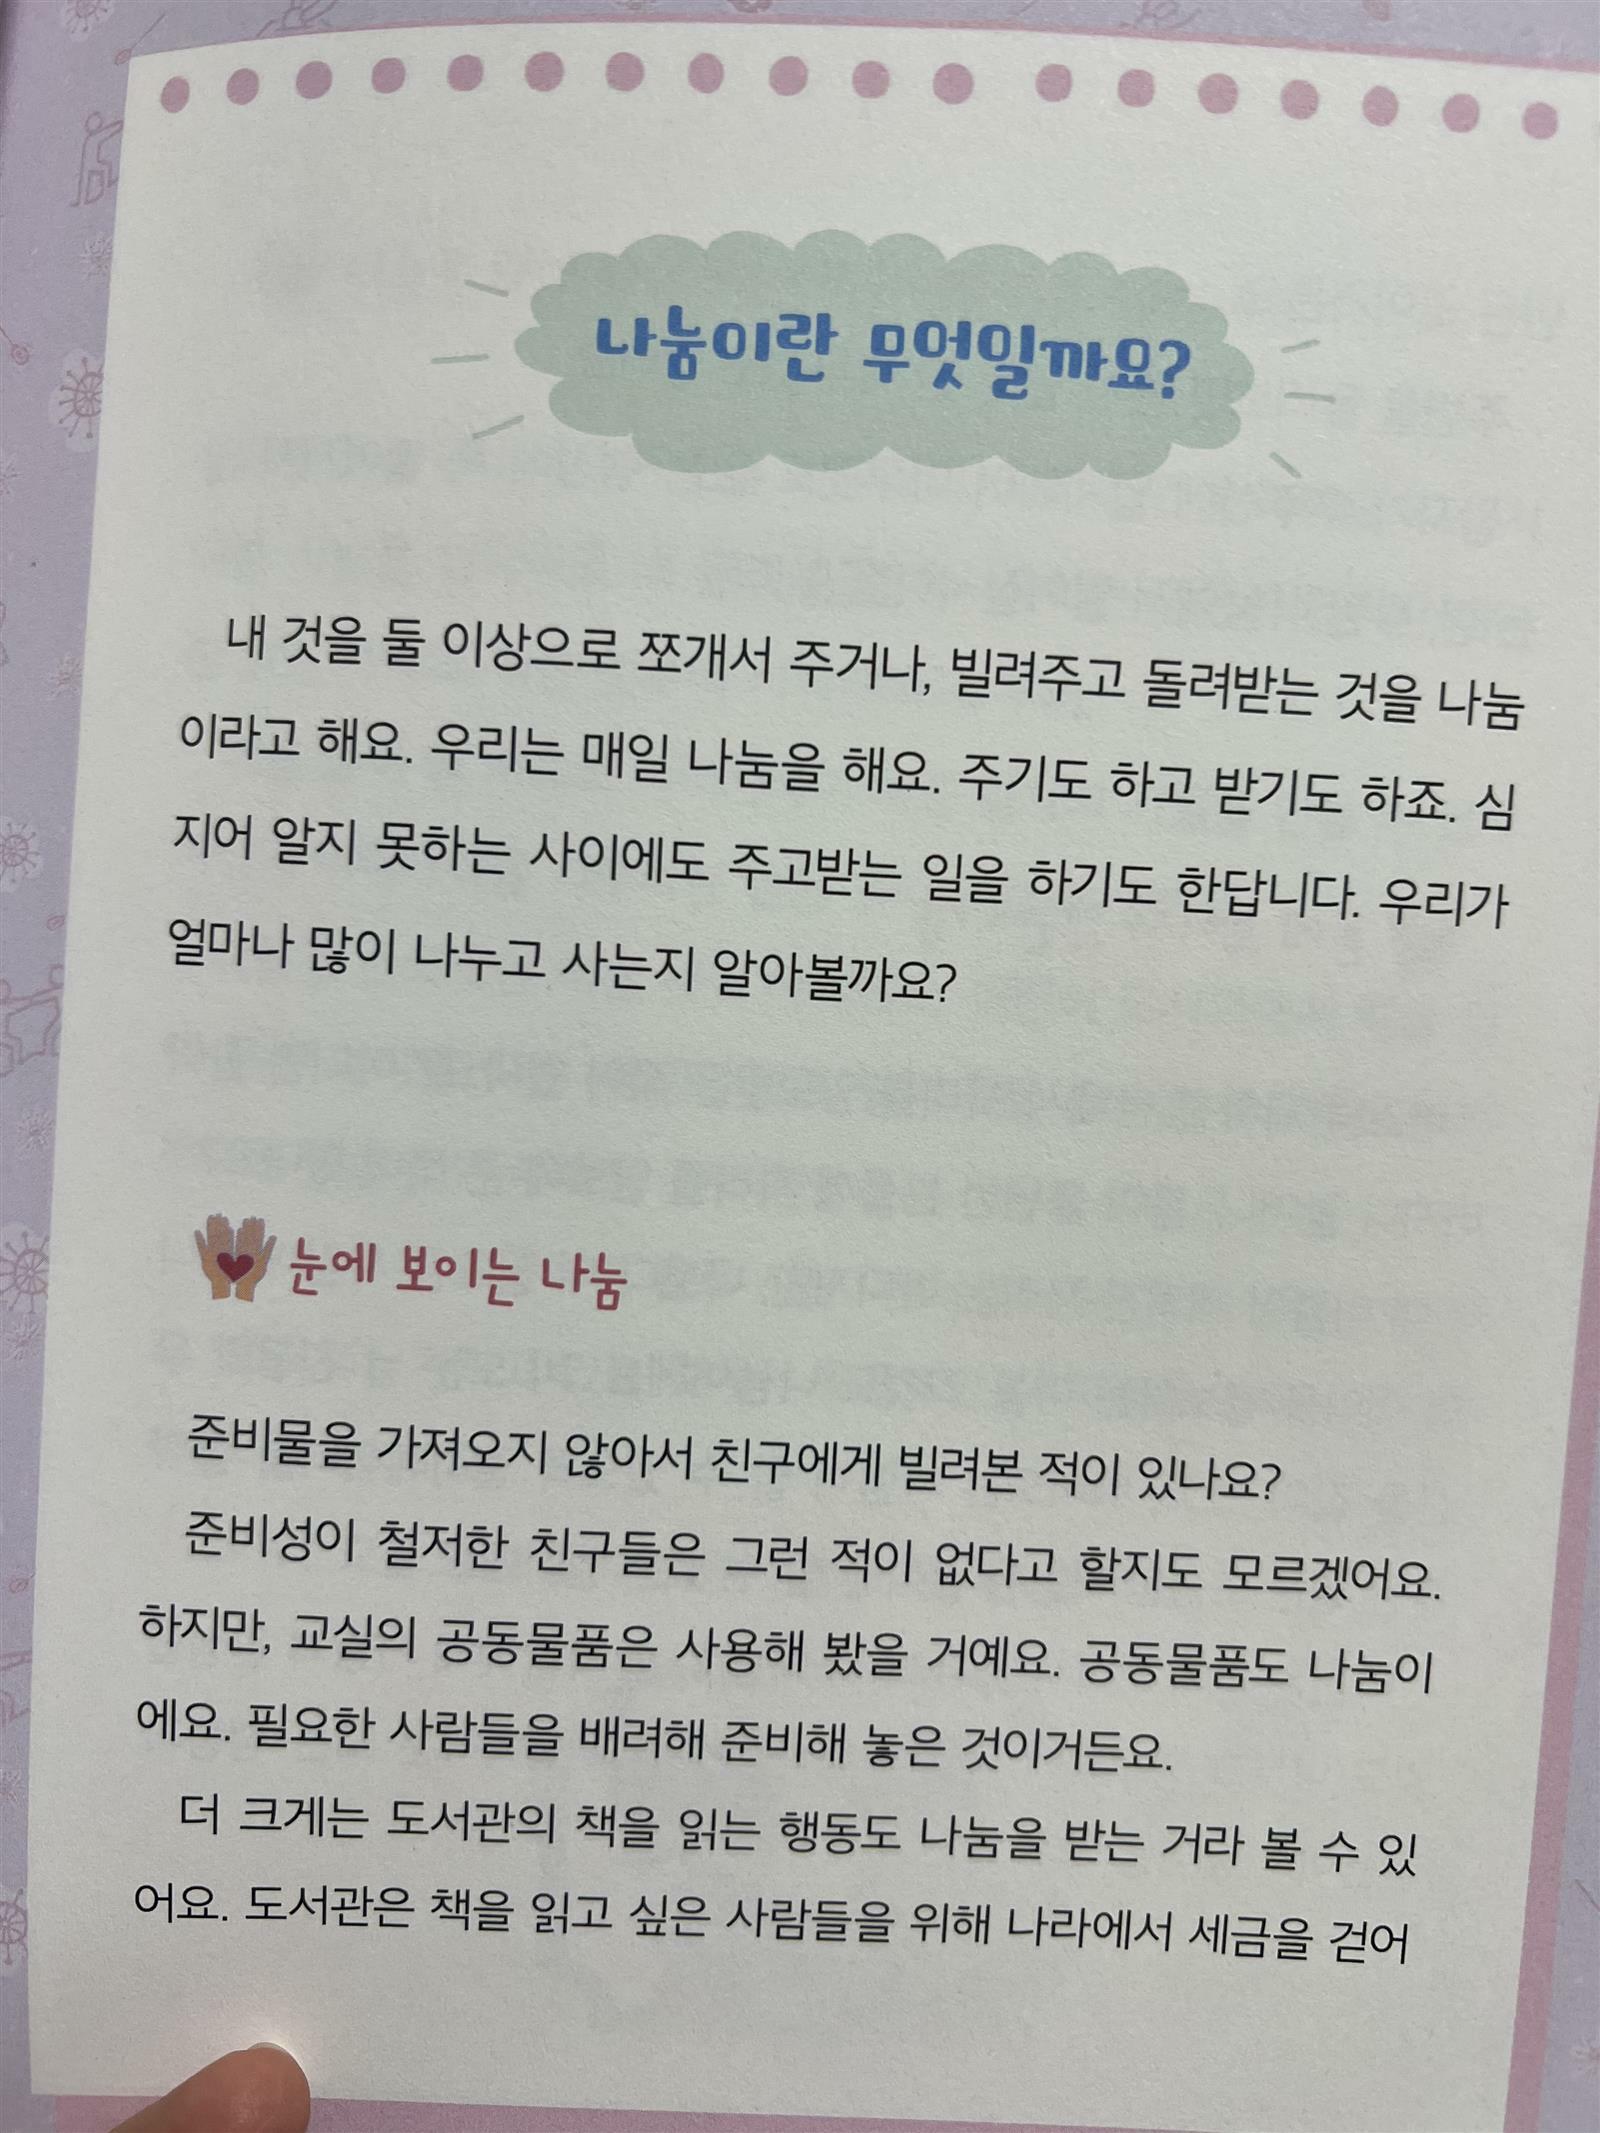 나눔이란 무엇일까요?
내 것을 둘 이상으로 쪼개서 주거나, 빌려주고 돌려받는 것을 나눔
이라고 해요. 우리는 매일 나눔을 해요. 주기도 하고 받기도 하죠. 심
지어 알지 못하는 사이에도 주고받는 일을 하기도 한답니다. 우리가
얼마나 많이 나누고 사는지 알아볼까요?
눈에 보이는 나눔
준비물을 가져오지 않아서 친구에게 빌려본 적이 있나요?
준비성이 철저한 친구들은 그런 적이 없다고 할지도 모르겠어요.
하지만, 교실의 공동물품은 사용해 봤을 거예요. 공동물품도 나눔이
에요. 필요한 사람들을 배려해 준비해 놓은 것이거든요.
더 크게는 도서관의 책을 읽는 행동도 나눔을 받는 거라 볼 수 있
어요. 도서관은 책을 읽고 싶은 사람들을 위해 나라에서 세금을 걷어